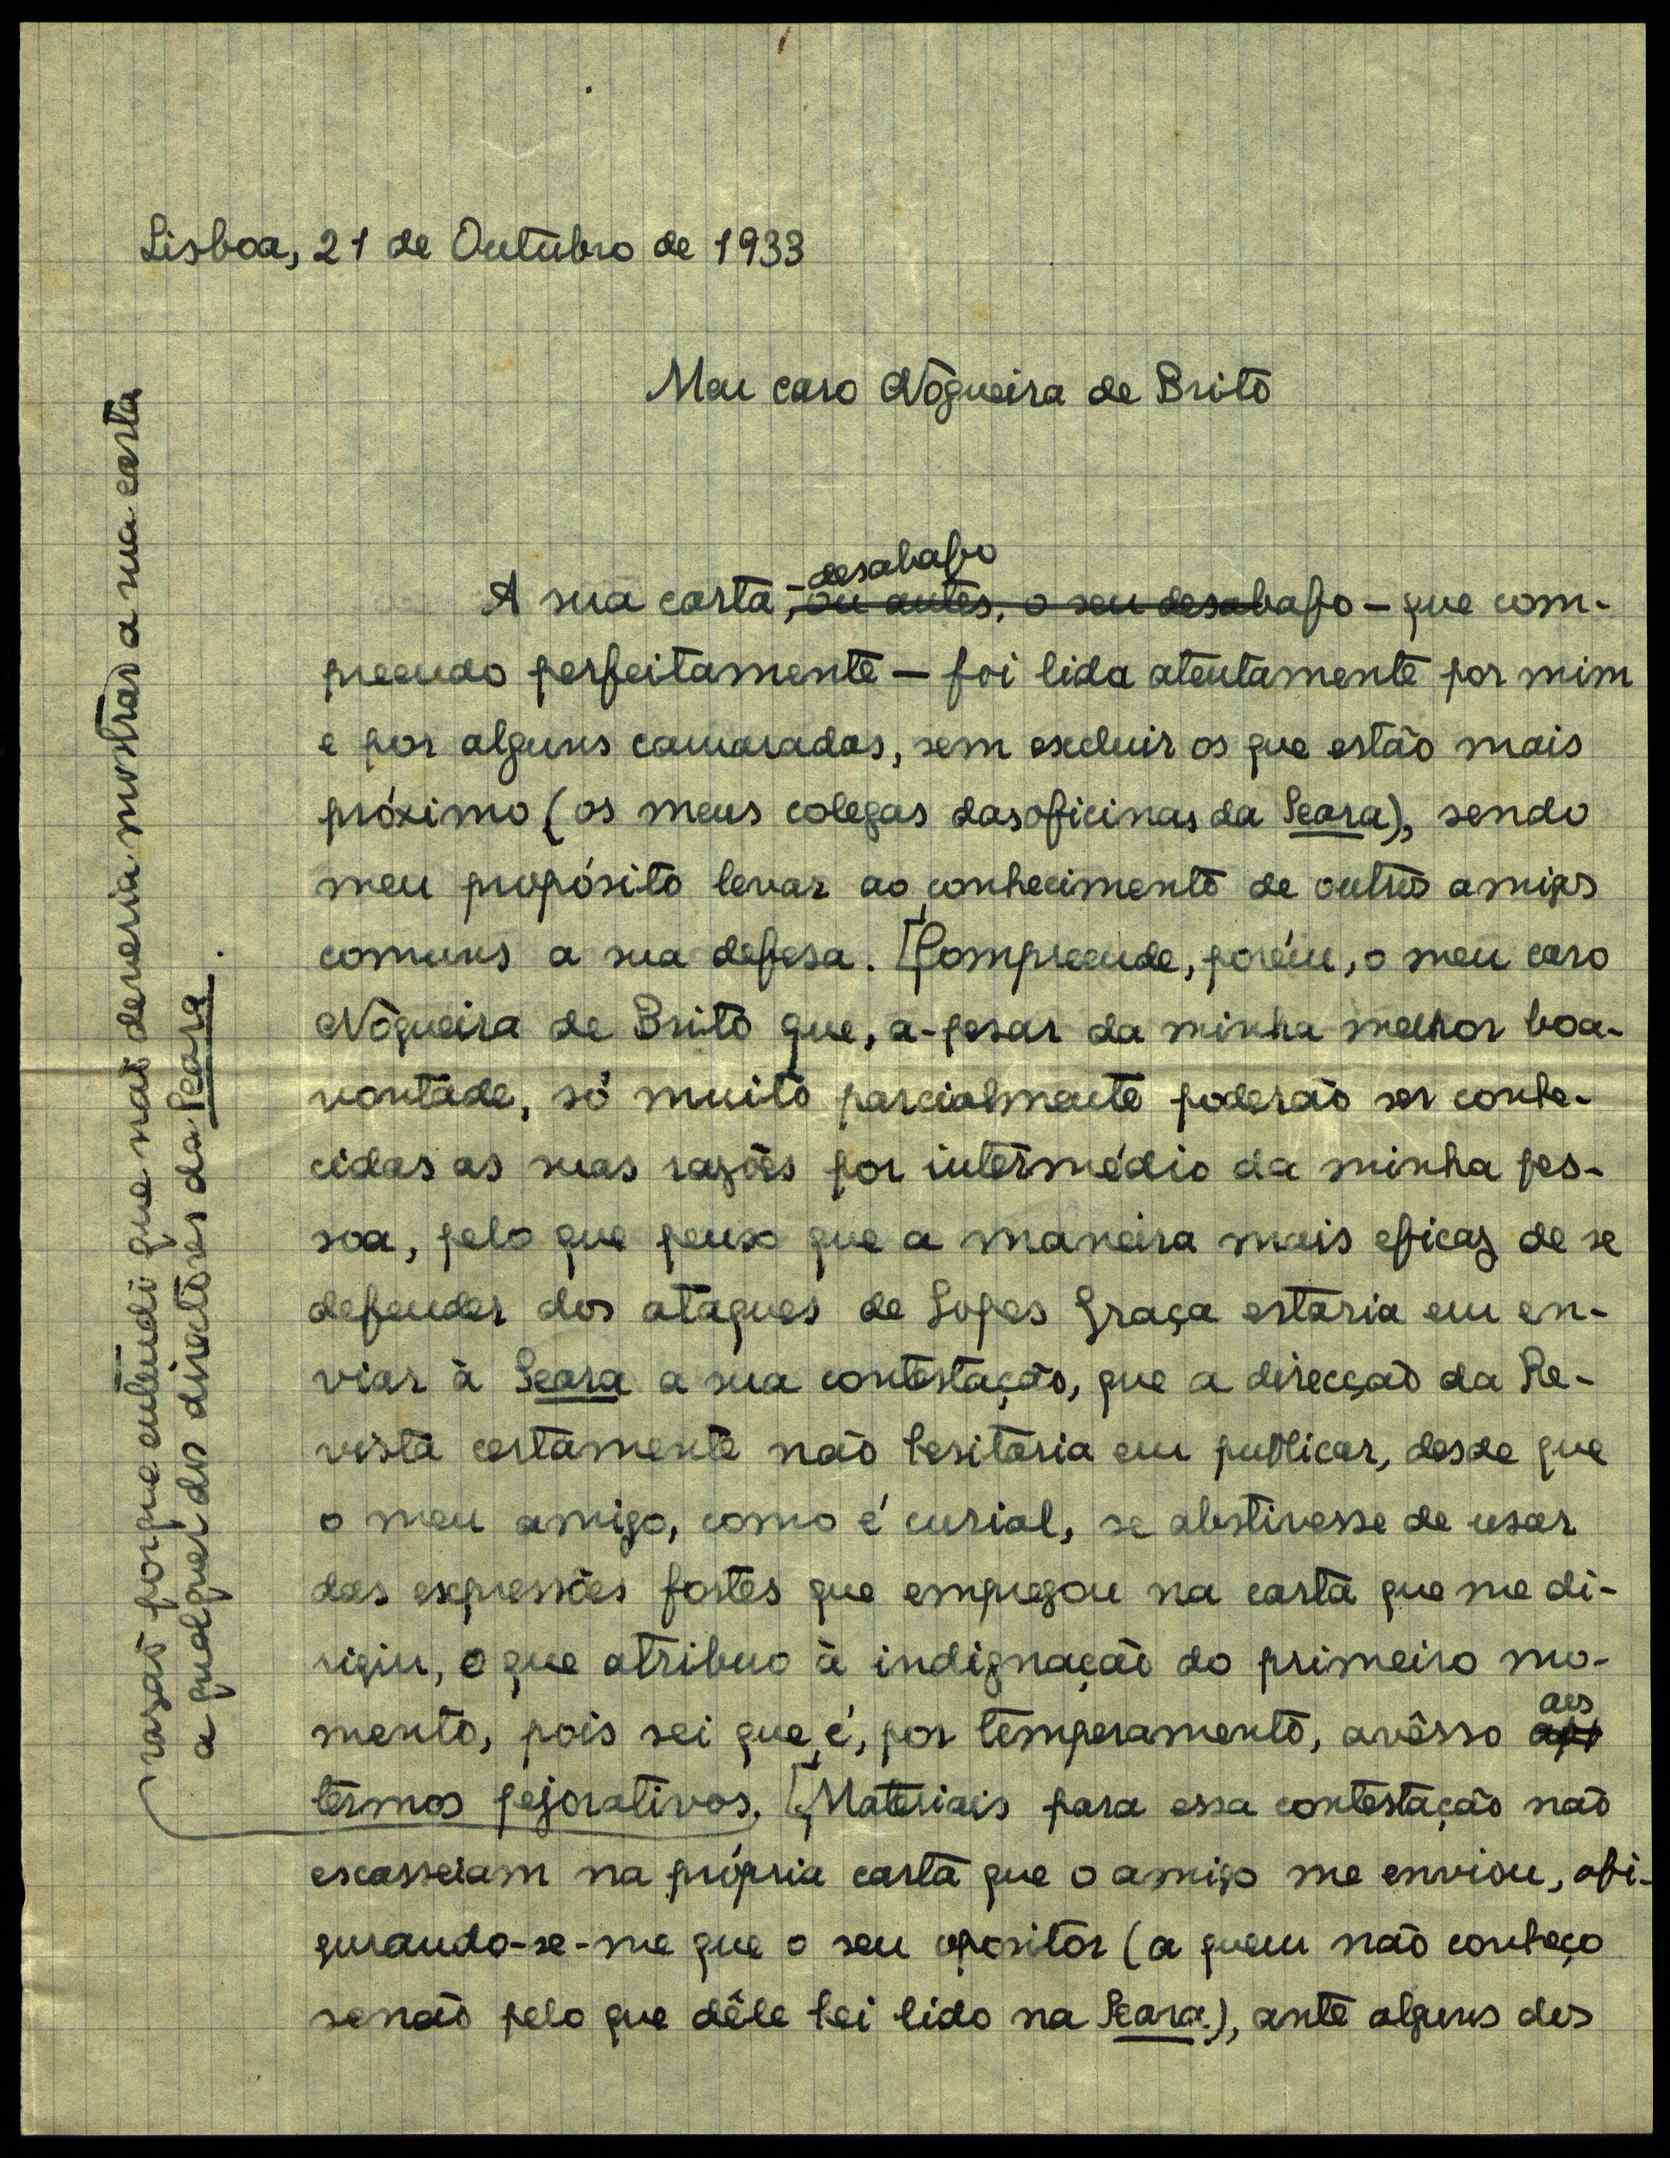 Lisboa, 21 de Outubro de 1933
Meu caro Nogueira de Brito
desabafo
A sua carta, – ou antes, o seu desabafo – que com-
preendo perfeitamente – foi lida atentamente por mim
e por alguns camaradas, sem excluir os que estão mais
próximo (os meus colegas das oficinas da Seara), sendo
meu propósito levar ao conhecimento de outros amigos
comuns a sua defesa. [Compreende, porém, o meu caro
Nogueira de Brito que, a-pesar da minha melhor boa-
vontade, só muito parcialmente poderão ser conhe-
cidas as suas razões por intermédio da minha pes-
soa, pelo que penso que a maneira mais eficaz de se
defender dos ataques de Lopes Graça estaria em en-
viar à Seara a sua contestação, que a direcção da Re-
vista certamente não hesitaria em publicar, desde que
o meu amigo, como é curial, se abstivesse de usar
das expressões fortes que empregou na carta que me di-
rigiu, o que atribuo à indignação do primeiro mo-
mento, pois sei que é, por temperamento, avêsso aos
termos pejorativos. [Materiais para essa contestação não
escasseiam na própria carta que o amigo me enviou, afi-
gurando-se-me que o seu opositor (a quem não conheço
senão pelo que dêle hei lido na Seara), ante alguns dos
razão porque entendi que não deveria mostrar a sua carta
a qualquer dos directores da Seara.